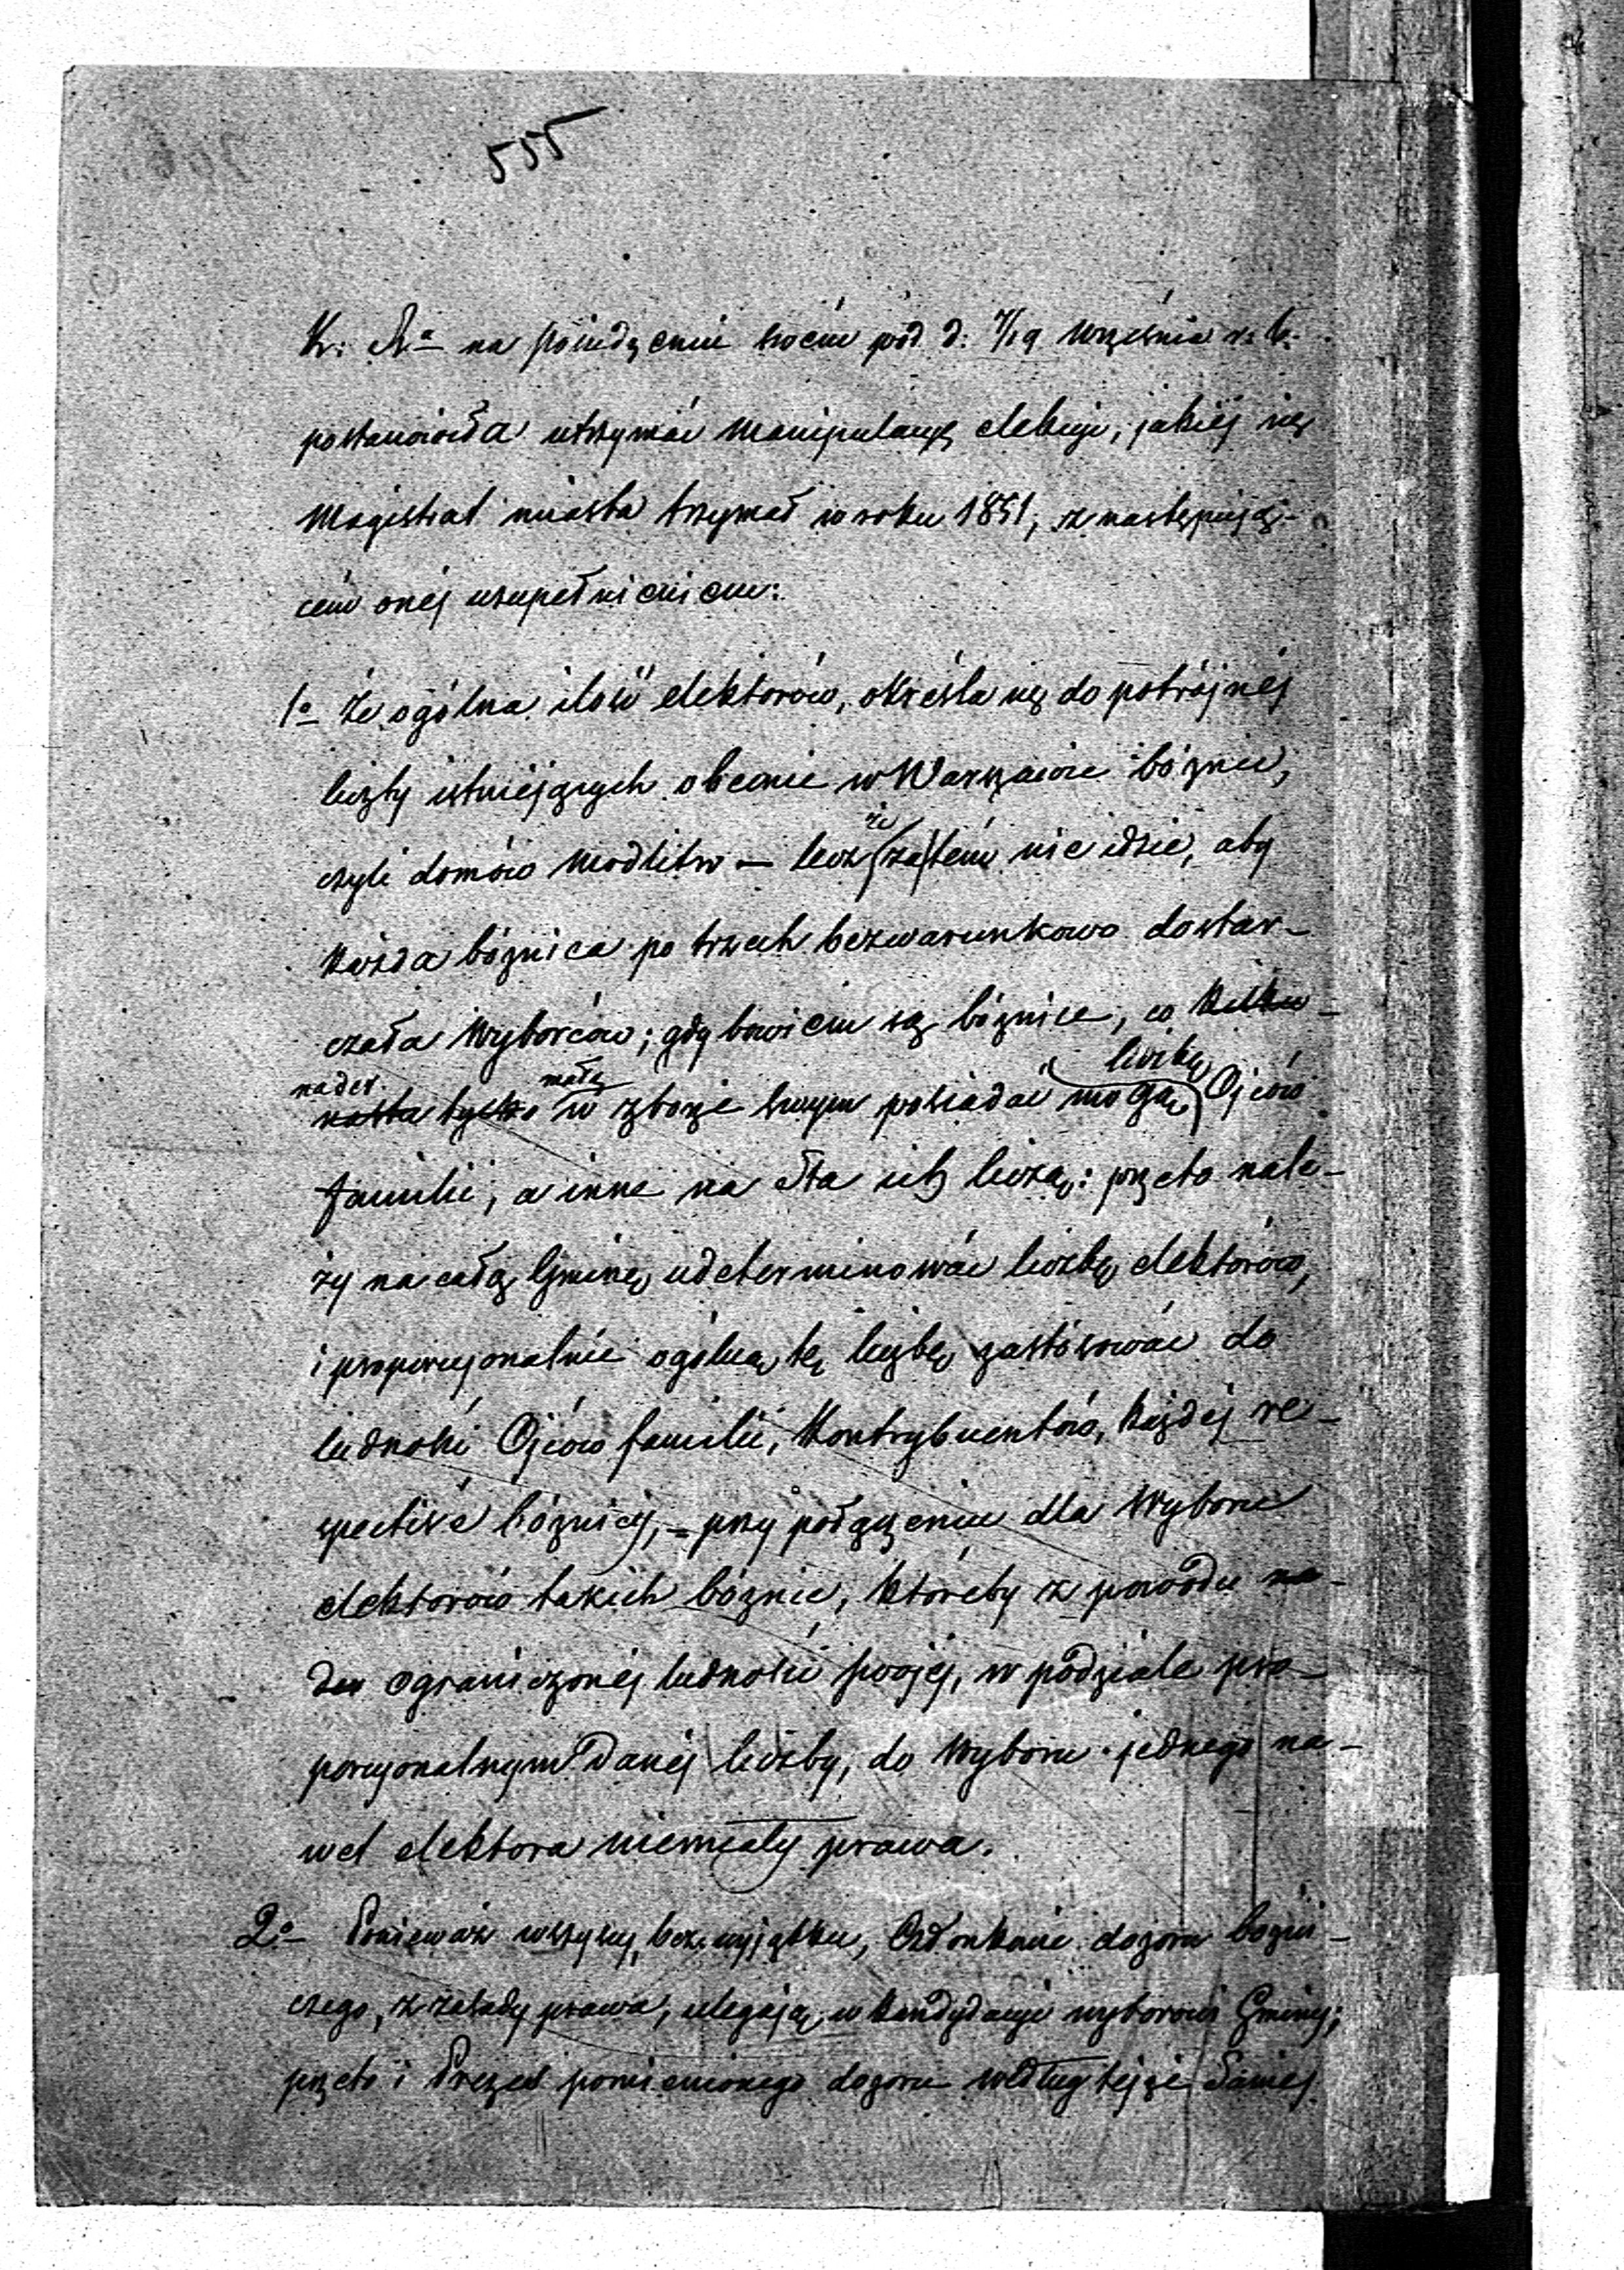 555
K: R<sup>a</sup> na posiedzeniu swém pod d: 7/19 Września r. b.
postanowiła utrzymać manipulacyę elekcyi, jakiéj się
Magistrat miasta trzymał w roku 1851, z następują-
cém onéj uzupełnieniem:
1º Że ogólna ilość elektorów, określa się do potrójnéj
liczby istniejących obecnie w Warszawie bóżnic,
czyli domów modlitw — lecz że (za)tém nie idzie, aby
każda bóżnica po trzech bezwarunkowo dostar-
czała wyborców; gdy bowiem są bóżnice, co kilku-
nader małą liczbę
nasta tylko w zborze swym posiadać mogą Ojców
familii, a inne na sta ich liczą: przeto nale-
ży na całą Gminę udeterminować liczbę elektorów,
i proporcyonalnie ogólną tę liczbę zastósować do
ludności Ojców familii, Kontrybuentów, każdéj re-
spectivé bóżnicy, – przy połączeniu dla wyboru
elektorów takich bóżnic, któreby z powodu na-
der ograniczonéj ludności swojéj, w podziale pro-
porcyonalnym danéj liczby, do wyboru jednego na-
wet elektora niemiały prawa.
2º Ponieważ wszyscy, bez wyjątku, Członkowie dozoru bożni-
czego, z zasady prawa, ulegają w kandydacyi wyborowi Gminy;
przeto i Prezes pomienionego dozoru według téjże saméj